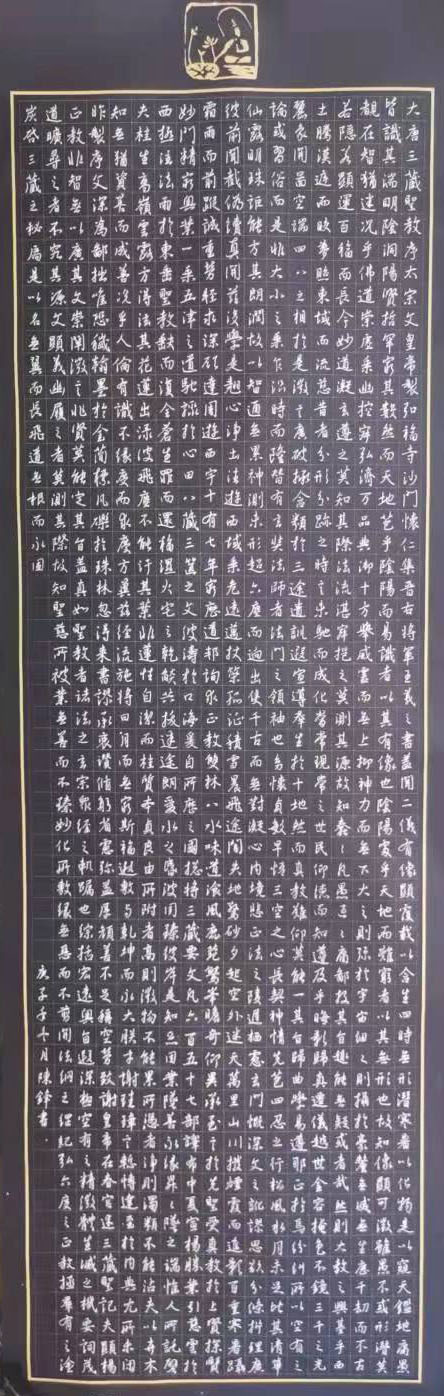 大唐三藏聖教序太宗文皇帝製弘福寺沙門懷仁集晉右將軍王羲之書蓋聞二儀有像顯覆載以含生四時無形潛寒暑以化物是以窺天鑑地庸愚
皆識其端明陰洞陽賢哲罕窮其數然而天地苞乎陰陽而易識者以其有像也陰陽處乎天地而難窮者以其無形也故知像顯可徵雖愚不惑形潛莫
覩在智猶迷況乎佛道崇虛乘幽控寂弘濟萬品典御十方舉威靈而無上抑神力而無下大之則彌於宇宙細之則攝於豪釐無滅無生歷千劫而不古
若隱若顯運百福而長今妙道凝玄遵之莫知其際法流湛寂挹之莫測其源故知蠢蠢凡愚區區庸鄙投其旨趣能無疑惑者哉然則大教之興基乎西
土騰漢庭而皎夢照東域而流慈昔者分形分跡之時言未馳而成化當常現常之世民仰德而知遵及乎晦影歸真遷儀越世金容掩色不鏡三千之光
麗象開圖空端四八之相於是微言廣被拯含類於三途遺訓遐宣導群生於十地然而真教難仰莫能一其旨歸曲學易遵耶正於焉紛糺所以空有之
論或習俗而是非大小之乘乍沿時而隆替有玄奘法師者法門之領袖也幼懷貞敏早悟三空之心長契神情先苞四忍之行松風水月未足比其清華
仙露明珠詎能方其朗潤故以智通無累神測未形超六塵而迥出隻千古而無對凝心內境悲正法之陵遲栖慮玄門慨深文之訛謬思欲分條析理廣
彼前聞截偽續真開茲後學是以翹心淨土法遊西域乘危遠邁杖策孤征積雪晨飛途間失地驚砂夕起空外迷天萬里山川撥煙霞而進影百重寒暑躡
霜雨而前蹤誠重勞輕求深願達周遊西宇十有七年窮歷道邦詢求正教雙林八水味道飡風鹿菀鷲峰瞻奇仰異承至言於先聖受真教於上賢探賾
妙門精窮奧業一乘五律之道馳驟於心田八藏三篋之文波濤於口海爰自所歷之國總將三藏要文凡六百五十七部譯布中夏宣揚勝業引慈雲於
西極注法雨於東垂聖教缺而復全蒼生罪而還福濕火宅之乾焰共拔迷途朗愛水之昏波同臻彼岸是知惡因業墜善以緣昇昇墜之端惟人所託譬
夫桂生高嶺雲露方得泫其花蓮出淥波飛塵不能汙其葉非蓮性自潔而桂質本貞良由所附者高則微物不能累所憑者淨則濁類不能沾夫以卉木
無知猶資善而成善況乎人倫有識不緣慶而求慶方冀茲經流施將日月而無窮斯福遐敷與乾坤而永大朕才謝珪璋言慚博達至於內典尤所未閑
昨製序文深為鄙拙唯恐穢翰墨於金簡標瓦礫於珠林忽得來書謬承褒讚循躬省慮彌益厚顏善不足稱空勞致謝皇帝在春宮述三藏聖記夫顯揚
正教非智無以廣其文崇闡微言非賢莫能定其旨蓋真如聖教者諸法之玄宗眾經之軌躅也綜括宏遠奧旨遐深極空有之精微體生滅之機要詞茂
道曠尋之者不究其源文顯義幽履之者莫測其際故知聖慈所被業無善而不臻妙化所敷緣無惡而不剪開法網之綱紀弘六度之正教拯群有之塗
炭啟三藏之秘扃是以名無翼而長飛道無根而永固
庚子年十月陳鋒書